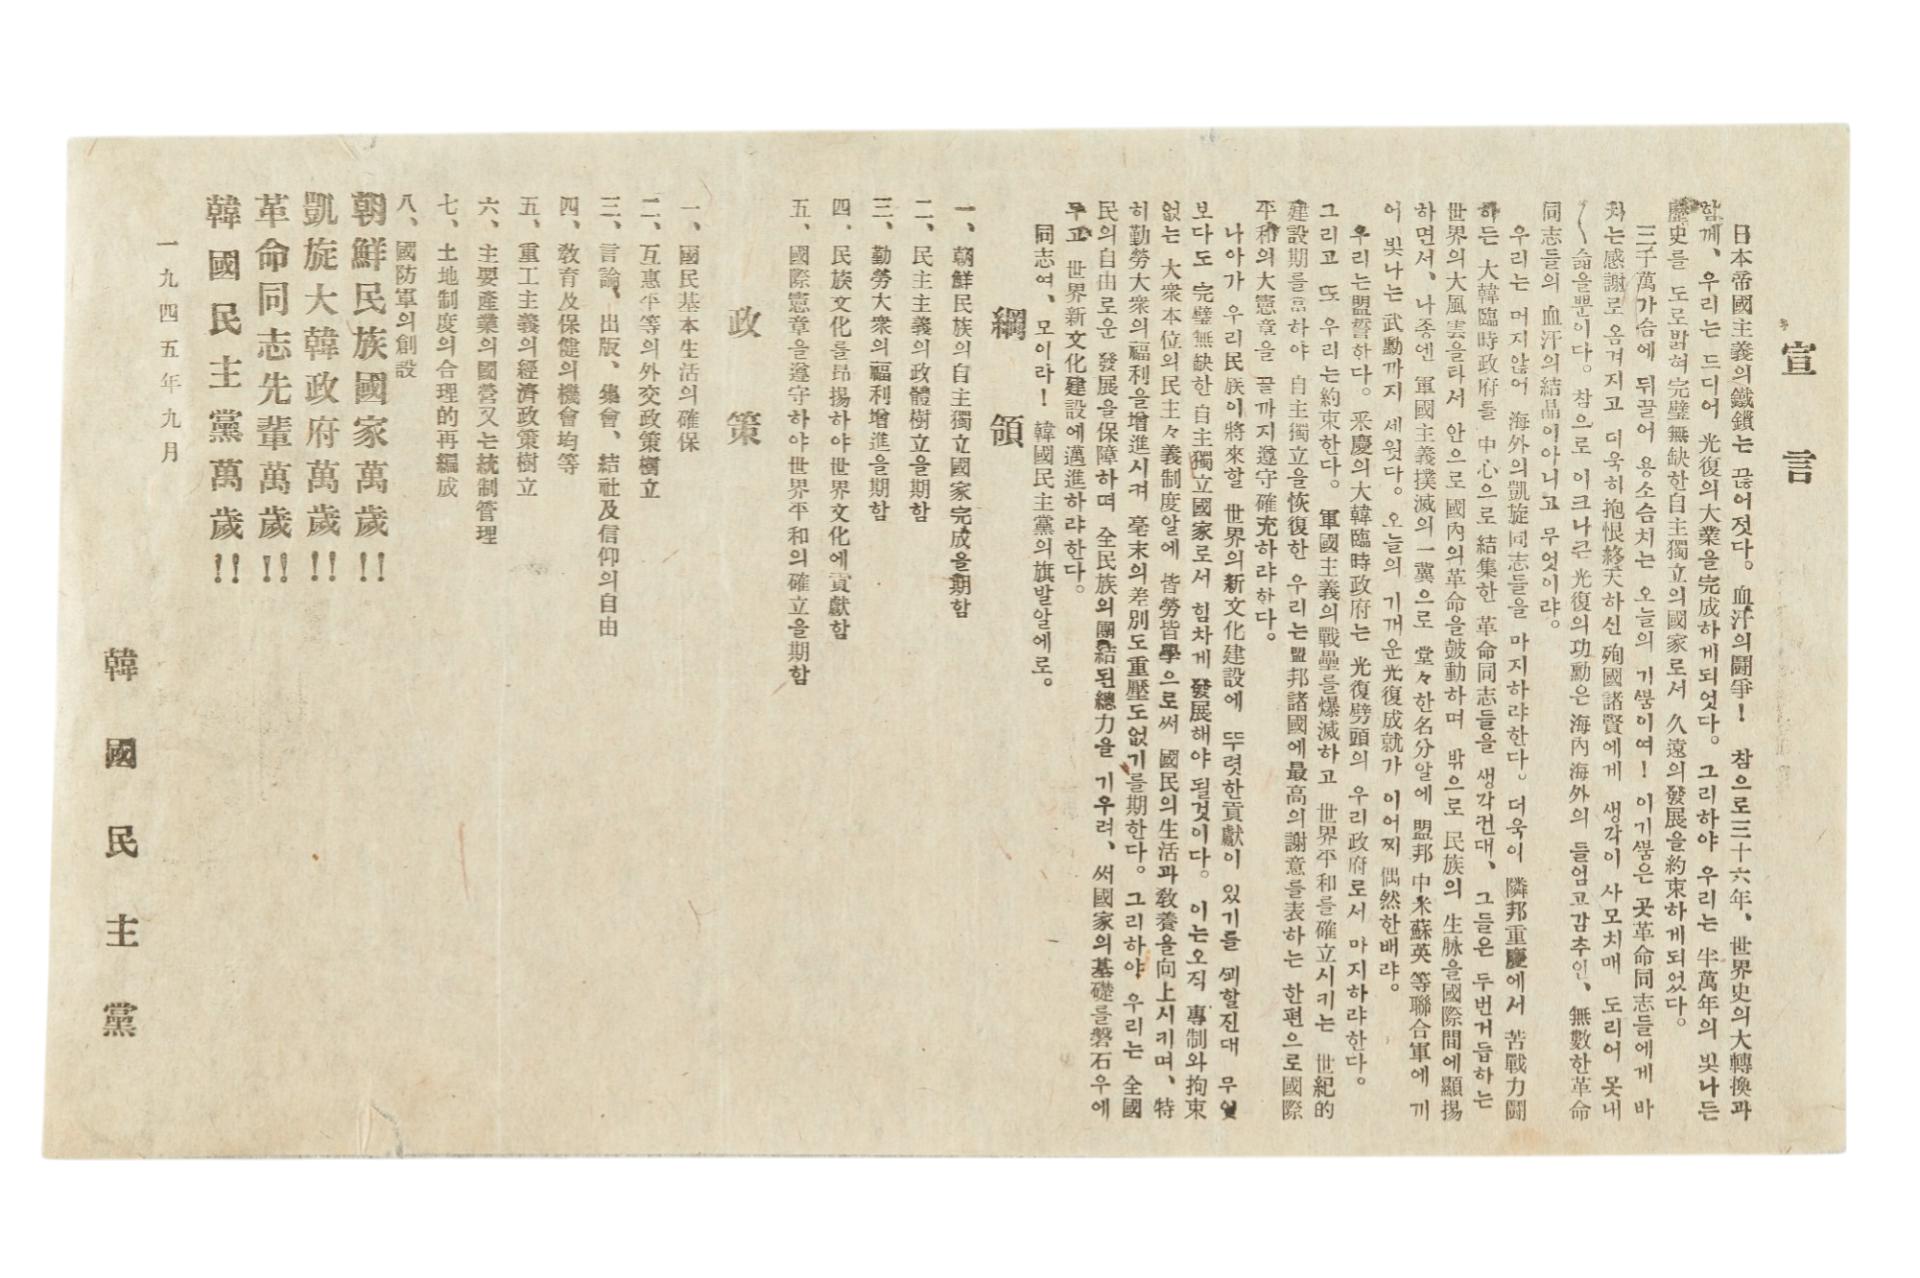 宣言
日本帝國主義의鐵鎖는 끊어젓다。血汗의鬪爭! 참으로三十六年、世界史의大轉換과
함께、우리는 드디어 光復의大業을完成하게되엇다。그리하야 우리는 半萬年의 빛나든
歷史를 도로밝혀完璧無缺한自主獨立의國家로서 久遠의發展을約束하게되었다。
三千萬가슴에 뒤끌어 용소슴치는 오늘의 기쁨이여! 이기쁨은 곳革命同志들에게 바
치는感謝로 옴겨지고 더욱히抱恨終天하신 殉國諸賢에게 생각이 사모치매 도리어 못내
슯을뿐이다。참으로 이크나큰光復의功勳은 海內海外의 들엄고감추인、無數한革命
同志들의 血汗의結晶이아니고 무엇이랴。
우리는 머지않어 海外의凱旋同志들을 마지하랴한다。더욱이 隣邦重慶에서 苦戰力鬪
하든 大韓臨時政府를 中心으로結集한 革命同志들을 생각컨대、그들은 두번거듭하는
世界의大風雲을타서 안으로國內의革命을鼓動하며 밖으로 民族의 生脉을國際間에顯揚
하면서、나종엔 軍國主義撲滅의一翼으로 堂々한名分알에 盟邦 中米蘇英等聯合軍에 끼
어 빛나는 武勳까지 세웟다。오늘의 기꺼운光復成就가 이어찌 偶然한배랴。
우리는盟誓한다。重慶의大韓臨時政府는 光復劈頭의 우리政府로서 마지하랴한다。
그리고 또 우리는約束한다。軍國主義의戰壘를爆滅하고 世界平和를確立시키는 世紀的
建設期를 하야 自主獨立을恢復한 우리는盟邦諸國에最高의謝意를表하는 한편으로國際
平和의大憲章을 끝까지遵守確充하랴한다。
나아가 우리民族이將來할 世界의新文化建設에 뚜렷한貢獻이 있기를 꾀할진대 무엇
보다도 完璧無缺한 自主獨立國家로서 힘차게 發展해야 될것이다。이는오직 專制와拘束
없는 大衆本位의民主々義制度알에 皆勞皆學으로써 國民의生活과敎養을向上시키며、特
히勤勞大衆의福利을增進시켜 毫末의差別도重壓도없기를期한다。그리하야 우리는 全國
民의自由로운 發展을保障하며 全民族의團結된總力을 기우려、써國家의基礎를磐石우에
두고 世界新文化建設에邁進하랴한다。
同志여、모이라! 韓國民主黨의旗발알에로。
綱領
一、朝鮮民族의自主獨立國家完成을期함
二、民主主義의政體樹立을期함
三、勤勞大衆의福利增進을期함
四、民族文化를昻揚하야世界文化에貢獻함
五、國際憲章을遵守하야世界平和의確立을期함
政策
一、國民基本生活의確保
二、互惠平等의外交政策樹立
三、言論、出版、集會、結社及信仰의自由
四、敎育及保健의機會均等
五、重工主義의經濟政策樹立
六、主要產業의國營又는統制管理
七、土地制度의合理的再編成
八、國防軍의創設
朝鮮民族國家萬歲!!
凱旋大韓政府萬歲!!
革命同志先輩萬歲!!
韓國民主黨萬歲!!
一九四五年九月
韓國民主黨